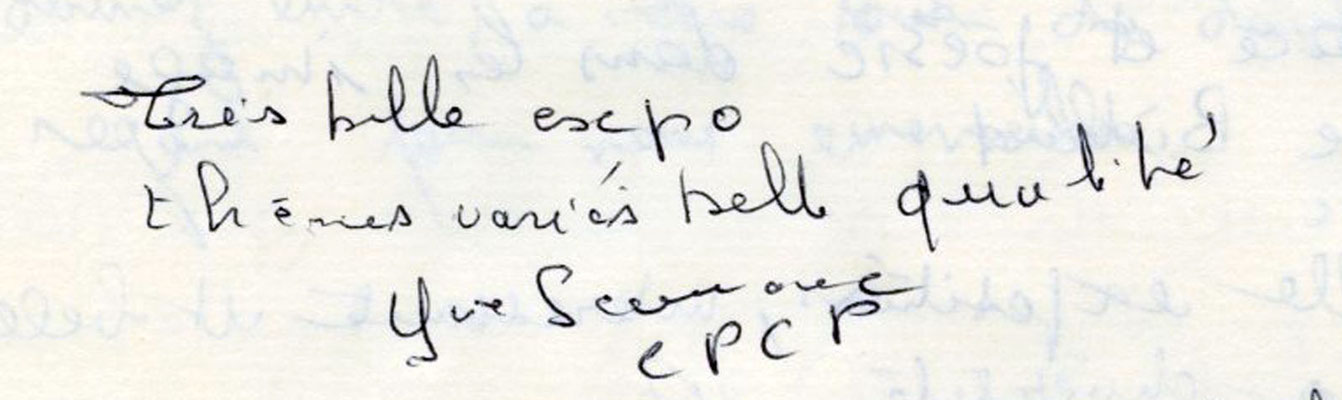 Très belle expo
thèmes variés belle qualité
CPCP